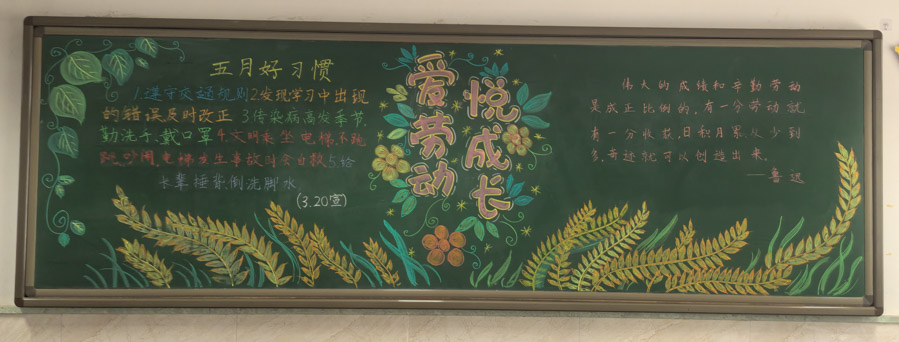 五月好习惯
1遵守交通规则2发现学习中出现
的错误及时改正 3传染病高发季节
勤洗手,戴口罩4文明乘坐电梯不跳
跳吵闹,电梯发生事故时会自救5给
长辈捶背倒洗脚水
(3.20宣)
爱劳动
悦成长
伟大的成绩和辛勤劳动
是成正比例的,有一分劳动就
有一分收获,日积月累,从少到
多,奇迹就可以创造出来.
——鲁迅